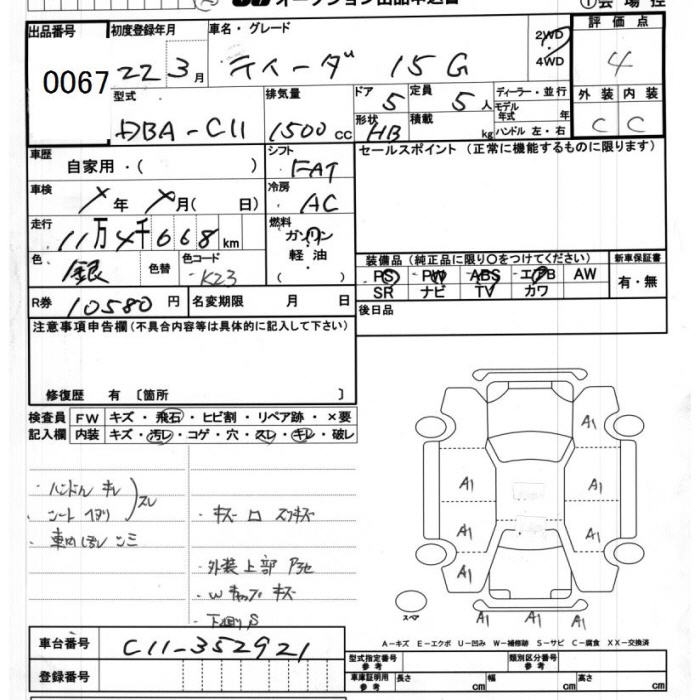 出品番号
0067
初度登録年月
22 3月
車名・グレード
ティーダ 15G
2WD
4WD
評価点
4
型式
DBA-C11
排気量
1500cc
ドア
5
定員
5人
形状
HB
積載
kg
ディーラー・並行
モデル年式 年
ハンドル 左・右
外装
内装
C
C
車歴
自家用・( )
シフト
FAT
セールスポイント(正常に機能するものに限ります)
車検
年 月( 日)
冷房
AC
走行
11万4千668km
燃料
ガソリン
軽油
( )
色
銀
色替
色コード
K23
装備品(純正品に限り○をつけてください)
PS PW ABS エアB AW
SR ナビ TV カワ
新車保証書
有・無
R券 10580円
名変期限 月 日
後日品
注意事項申告欄(不具合内容等は具体的に記入して下さい)
修復歴 有〔箇所 〕
検査員記入欄
FW キズ・飛石・ヒビ割・リペア跡・×要
内装 キズ・汚レ・コゲ・穴・スレ・キレ・破レ
・ハンドル キレ
スレ
・キズ
・外装上部
・Wキャップ キズ
・下回りS
A1
A1
A1
A1
A1
A1
A1
A1
A1
スペア
A-キズ E-エクボ U-凹み W-補修跡 S-サビ C-腐食 XX-交換済
車台番号 C11-352921
登録番号
型式指定番号 参考
類別区分番号 参考
車庫証明用 参考
長さ cm
幅 cm
高さ cm